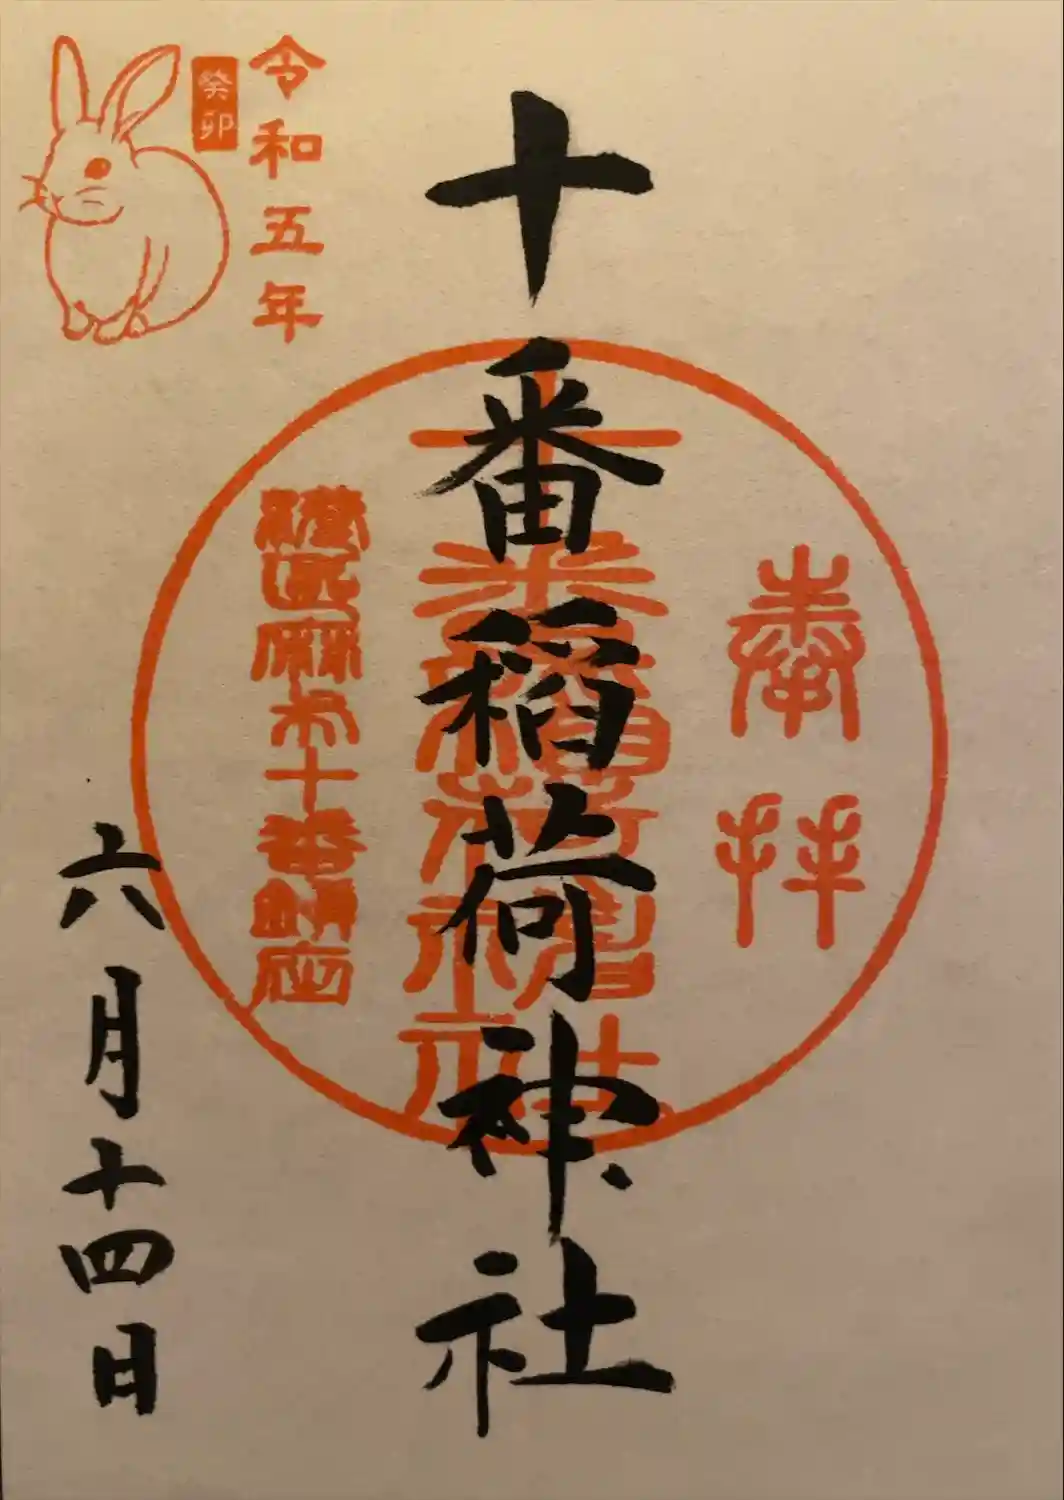 奉拝
十番稲荷神社
十番稲荷神社
港区麻布十番鎮座
令和五年
癸卯
六月十四日